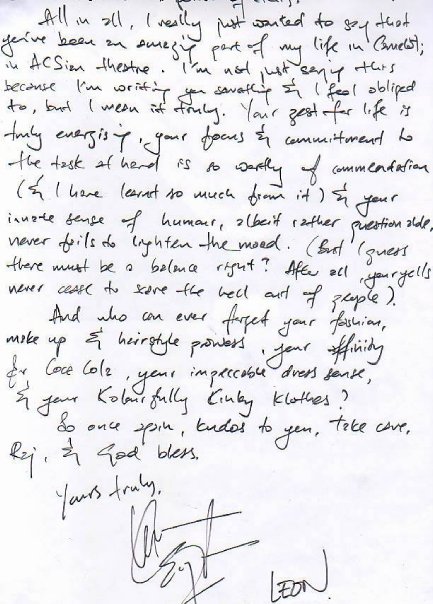 All in all, I really just wanted to say that
you've been an amazing part of my life in Camelot;
in ACSian theatre. I'm not just saying this
because I'm writing you something & I feel obliged
to, but I mean it truly. Your zest for life is
truly energising, your focus & commitment to
the task at hand is so worthy of commendation
(& I have learnt so much from it) & your
innate sense of humour, albeit rather questionable,
never fails to lighten the mood. (But I guess
there must be a balance right? After all, your yells
never cease to scare the hell out of people).
And who can ever forget your fashion,
make up & hairstyle prowess, your affinity
for Coca Cola, your impeccable dress sense,
& your Kolourfully Kinky Klothes?
So once again, kudos to you, take care,
Raj, & God bless.
Yours truly,
LEON